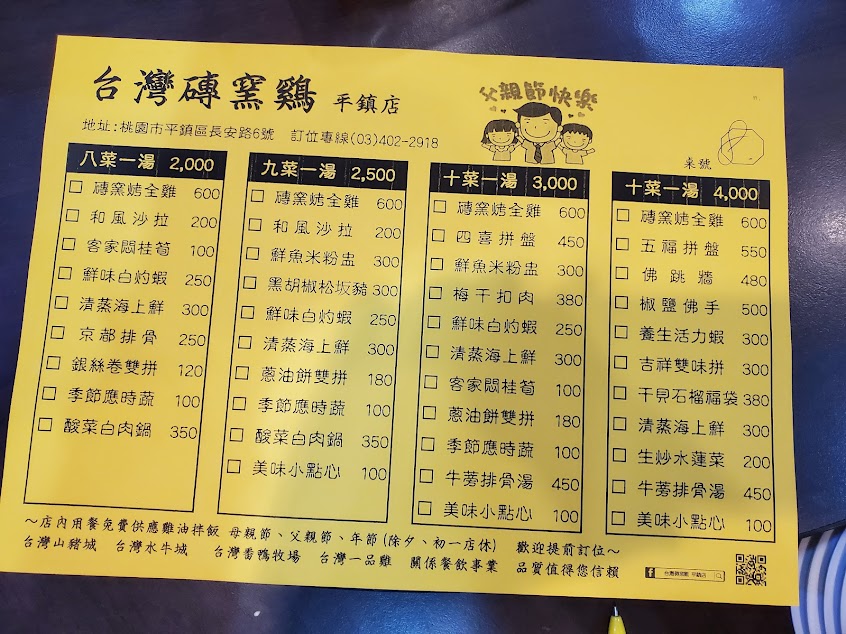 台灣磚窯鷄 平鎮店
父親節快樂
地址:桃園市平鎮區長安路6號 訂位專線(03)402-2918
桌號
八菜一湯 2,000
□ 磚窯烤全雞 600
□ 和風沙拉 200
□ 客家悶桂筍 100
□ 鮮味白灼蝦 250
□ 清蒸海上鮮 300
□ 京都排骨 250
□ 銀絲卷雙拼 120
□ 季節應時蔬 100
□ 酸菜白肉鍋 350
九菜一湯 2,500
□ 磚窯烤全雞 600
□ 和風沙拉 200
□ 鮮魚米粉盅 300
□ 黑胡椒松坂豬 300
□ 鮮味白灼蝦 250
□ 清蒸海上鮮 300
□ 蔥油餅雙拼 180
□ 季節應時蔬 100
□ 酸菜白肉鍋 350
□ 美味小點心 100
十菜一湯 3,000
□ 磚窯烤全雞 600
□ 四喜拼盤 450
□ 鮮魚米粉盅 300
□ 梅干扣肉 380
□ 鮮味白灼蝦 250
□ 清蒸海上鮮 300
□ 客家悶桂筍 100
□ 蔥油餅雙拼 180
□ 季節應時蔬 100
□ 牛蒡排骨湯 450
□ 美味小點心 100
十菜一湯 4,000
□ 磚窯烤全雞 600
□ 五福拼盤 550
□ 佛跳牆 480
□ 椒鹽佛手 500
□ 養生活力蝦 300
□ 吉祥雙味拼 300
□ 干貝石榴福袋 380
□ 清蒸海上鮮 300
□ 生炒水蓮菜 200
□ 牛蒡排骨湯 450
□ 美味小點心 100
～店內用餐免費供應雞油拌飯 母親節、父親節、年節(除夕、初一店休) 歡迎提前訂位～
台灣山豬城 台灣水牛城 台灣番鴨牧場 台灣一品雞 關係餐飲事業 品質值得您信賴
f 台灣磚窯鷄 平鎮店